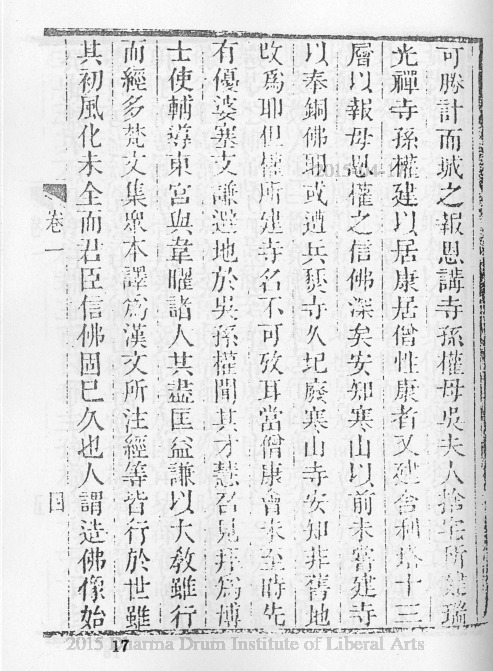 可勝計而城之報恩講寺孫權母吳夫人捨宅所建瑞
光禪寺孫權建以居康居僧性康者又建舍利塔十三
層以報母恩權之信佛深矣安知寒山以前未嘗建寺
以奉銅佛耶或遭兵燹寺久圮廢寒山寺安知非舊地
改爲耶但權所建寺名不可攷耳當僧康會未至時先
有優婆塞支謙避地於吳孫權聞其才慧召見拜爲博
士使輔導東宮與韋曜諸人共盡匡益謙以大敎雖行
而經多梵文集衆本譯爲漢文所注經等皆行於世雖
其初風化未全而君臣信佛固已久也人謂造佛像始
卷一
四
2015 Dharma Drum Institute of Liberal Arts
17